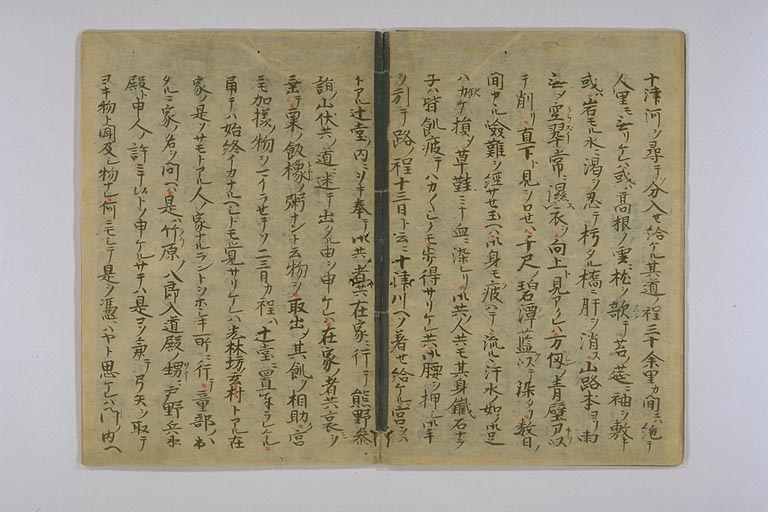 十津河ヲ尋テ分入セ給ケル其道ノ程三十余里カ間ニハ絶テ
人里モ無リケレハ或ハ高根ノ雲ニ枕ヲ欹テ苔ノ莚ニ袖ヲ敷キ
或ハ岩モル水ニ渇ヲ忍テ朽タル橋ニ肝ヲ消ス山路本ヨリ雨
無シテ空翠常ニ湿衣ヲ向上ト見アクレハ万仞ノ青壁刀ニ
テ削リ直下ト見ヲロセハ千尺ノ碧潭藍ニ染タリ数日ノ
間カヽル嶮難ヲ経サセ玉ヘハ御身モ疲ハテ流ルヽ汗水ノ如御足
ハカケ損シテ草鞋ミナ血ニ染レリ御共ノ人共モ其身鐵石ナラ
子ハ皆飢疲テハカ〳〵シクモ歩得サリケレ共御腰ヲ押御手
ヲ引テ路ノ程十三日ト云ニ十津川ヘソ着セ給ケル宮ヲハ
トアル辻堂ノ内ニヲキ奉テ御共ノ者共在家ニ行テ熊野参
詣ノ山伏共道ニ迷テ出タル由ヲ申ケレハ在家ノ者共哀ヲ
垂テ粟ノ飯橡ノ粥ナント云物ヲ取出シテ其飢ヲ相助ク宮
ニモ加様ノ物ヲマイラセテソ二三日カ程ハ辻堂ニ置奉ラレケル
角テハ始終イカナルヘシトモ覚サリケレハ光林坊玄村トアル在
家ノ是ソサモトアル人ノ家ナルラントヲホシキ所ニ行テ童部ノ出
タルニ家ノ名ヲ問ヘハ是ハ竹原八郎入道殿ノ甥ニ戸野兵衛
殿ト申人ノ許ニテトソ申ケルサテハ是コソ兼テ弓矢ヲ取テ
ヨキ物ト聞及シ物ナレ何ニモシテ是ヲ憑ハヤト思ケレハ門ノ内ヘ